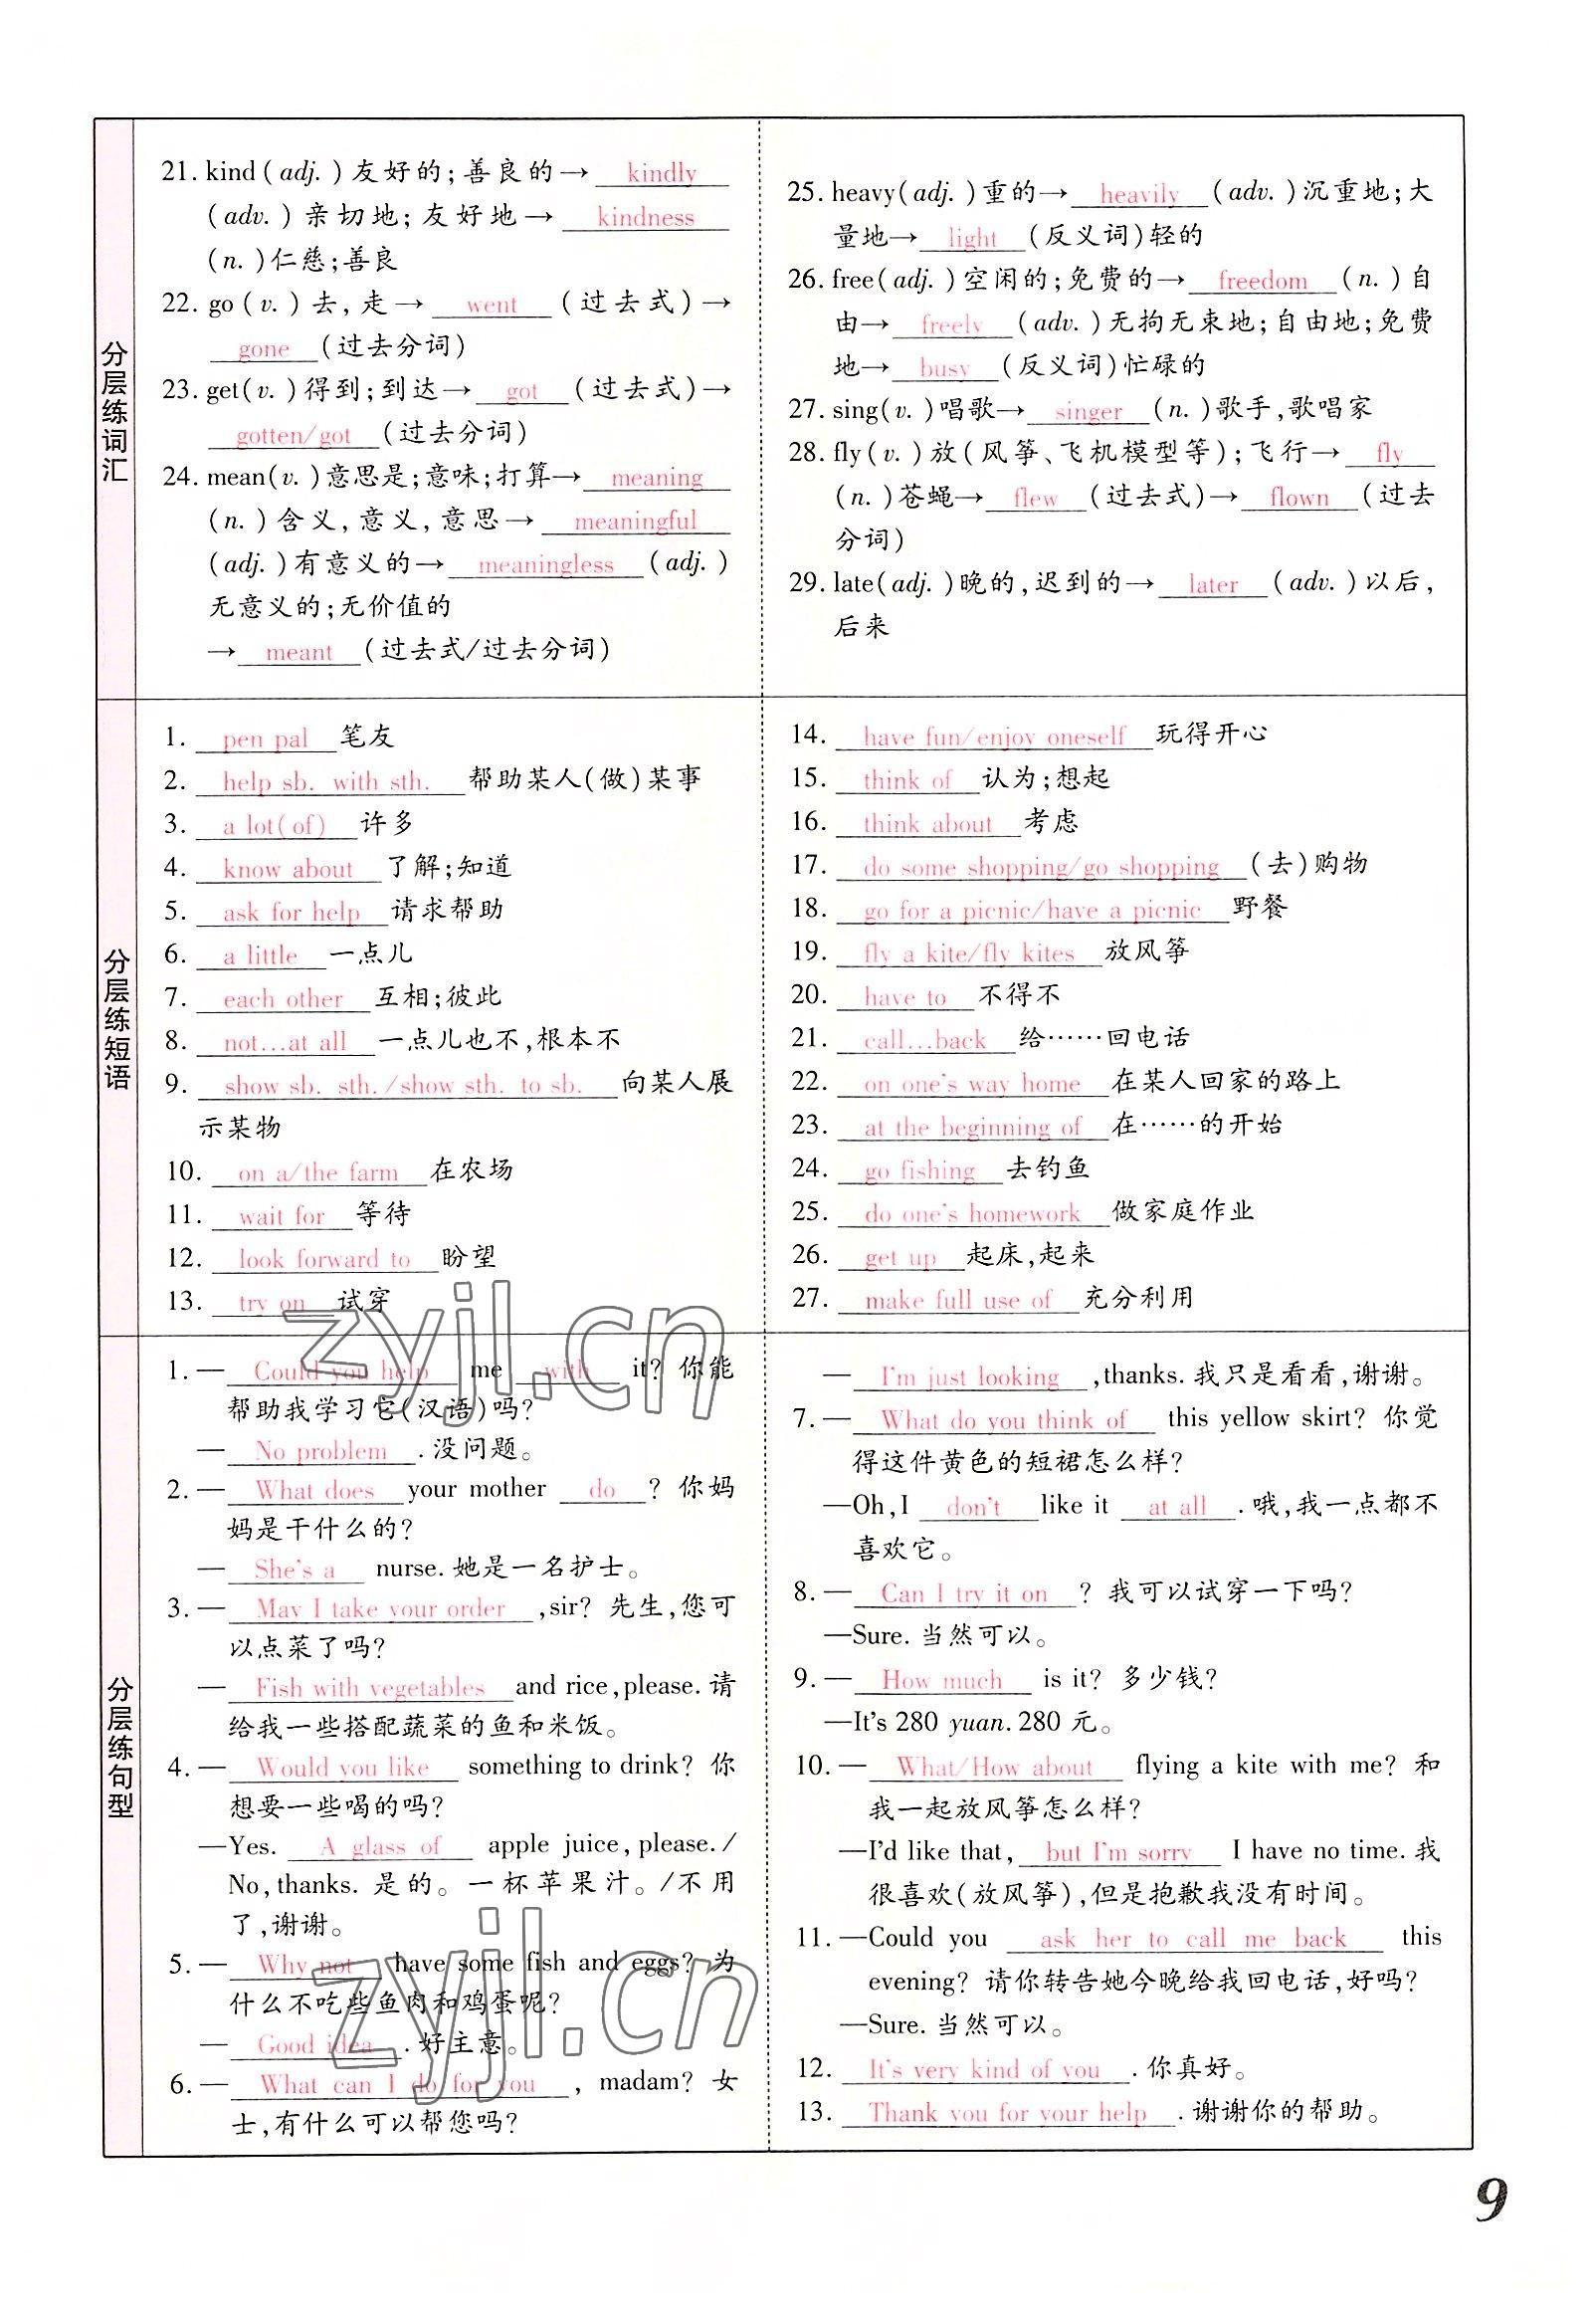 分层练词汇
21. kind(adj.)友好的;善良的→ kindly
(adv.)亲切地;友好地→ kindness
(n.)仁慈;善良
22. go(v.)去,走→ went (过去式)→
gone (过去分词)
23. get(v.)得到;到达→ got (过去式)→
gotten/got (过去分词)
24. mean(v.)意思是;意味;打算→ meaning
(n.)含义,意义,意思→ meaningful
(adj.)有意义的→ meaningless (adj.)
无意义的;无价值的
→ meant (过去式/过去分词)
25. heavy(adj.)重的→ heavily (adv.)沉重地;大
量地→ light (反义词)轻的
26. free(adj.)空闲的;免费的→ freedom (n.)自
由→ freely (adv.)无拘无束地;自由地;免费
地→ busy (反义词)忙碌的
27. sing(v.)唱歌→ singer (n.)歌手,歌唱家
28. fly(v.)放(风筝、飞机模型等);飞行→ fly
(n.)苍蝇→ flew (过去式)→ flown (过去
分词)
29. late(adj.)晚的,迟到的→ later (adv.)以后,
后来
分层练短语
1. pen pal 笔友
2. help sb. with sth. 帮助某人(做)某事
3. a lot(of) 许多
4. know about 了解;知道
5. ask for help 请求帮助
6. a little 一点儿
7. each other 互相;彼此
8. not…at all 一点儿也不,根本不
9. show sb. sth./show sth. to sb. 向某人展
示某物
10. on a/the farm 在农场
11. wait for 等待
12. look forward to 盼望
13. try on 试穿
14. have fun/enjoy oneself 玩得开心
15. think of 认为;想起
16. think about 考虑
17. do some shopping/go shopping (去)购物
18. go for a picnic/have a picnic 野餐
19. fly a kite/fly kites 放风筝
20. have to 不得不
21. call…back 给……回电话
22. on one's way home 在某人回家的路上
23. at the beginning of 在……的开始
24. go fishing 去钓鱼
25. do one's homework 做家庭作业
26. get up 起床,起来
27. make full use of 充分利用
分层练句型
1. — Could you help me with it? 你能
帮助我学习它(汉语)吗?
— No problem .没问题。
2. — What does your mother do ? 你妈
妈是干什么的?
— She's a nurse. 她是一名护士。
3. — May I take your order ,sir? 先生,您可
以点菜了吗?
— Fish with vegetables and rice,please. 请
给我一些搭配蔬菜的鱼和米饭。
4. — Would you like something to drink? 你
想要一些喝的吗?
—Yes. A glass of apple juice,please./
No,thanks. 是的。一杯苹果汁。/不用
了,谢谢。
5. — Why not have some fish and eggs? 为
什么不吃些鱼肉和鸡蛋呢?
— Good idea .好主意。
6. — What can I do for you , madam? 女
士,有什么可以帮您吗?
— I'm just looking ,thanks. 我只是看看,谢谢。
7. — What do you think of this yellow skirt? 你觉
得这件黄色的短裙怎么样?
—Oh,I don't like it at all .哦,我一点都不
喜欢它。
8. — Can I try it on ? 我可以试穿一下吗?
—Sure. 当然可以。
9. — How much is it? 多少钱?
—It's 280 yuan. 280 元。
10. — What/How about flying a kite with me? 和
我一起放风筝怎么样?
—I'd like that, but I'm sorry I have no time. 我
很喜欢(放风筝),但是抱歉我没有时间。
11. —Could you ask her to call me back this
evening? 请你转告她今晚给我回电话,好吗?
—Sure. 当然可以。
12. It's very kind of you .你真好。
13. Thank you for your help .谢谢你的帮助。
zyjl.cn
zyjl.cn
9